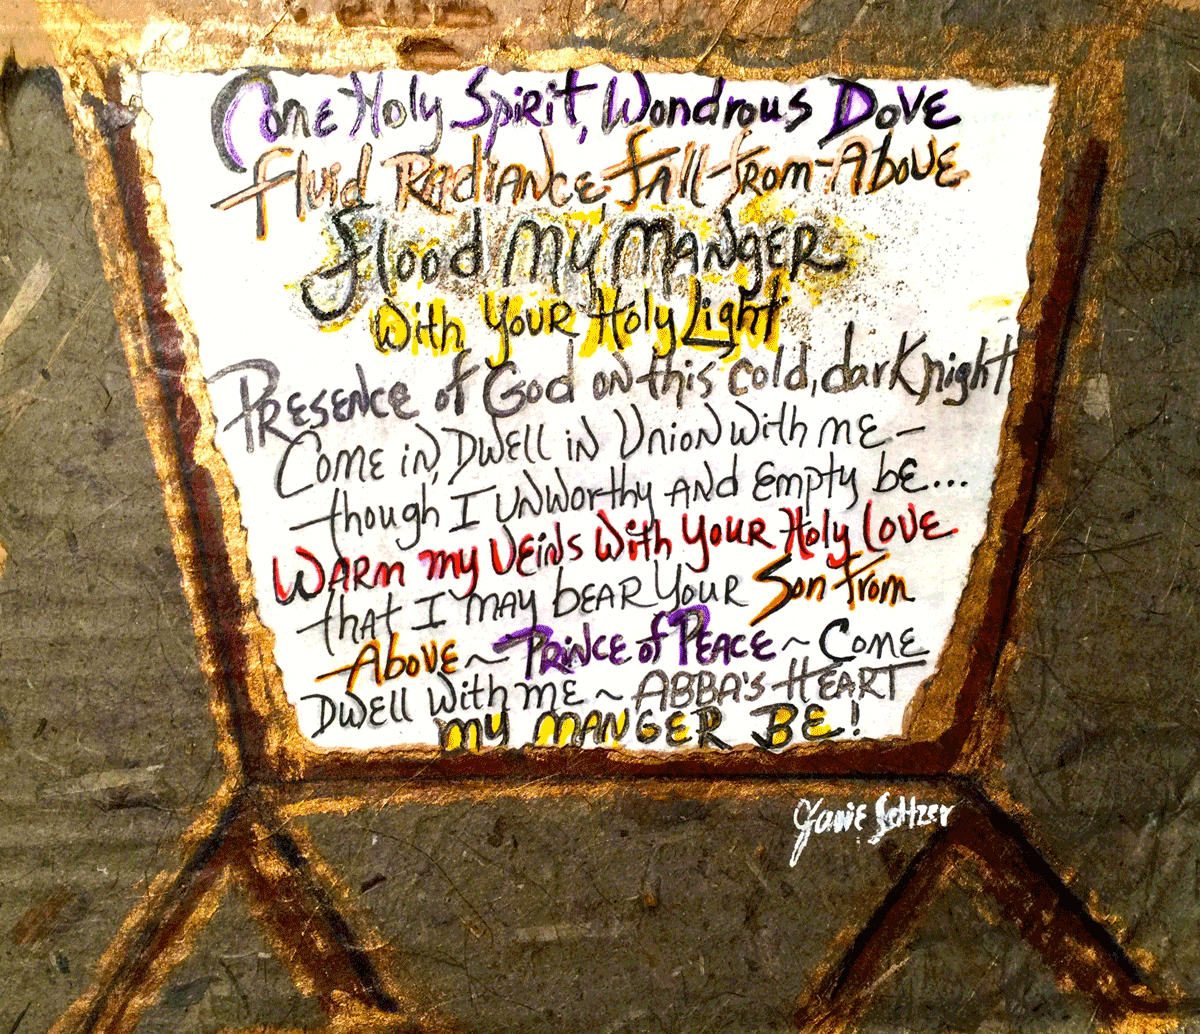 Come Holy Spirit, Wondrous Dove
Fluid Radiance Fall from Above
Flood My Manger
With Your Holy Light
Presence of God on this cold, dark night
Come in, Dwell in Union With me –
though I unworthy and empty be...
Warm my veins with your Holy Love
that I may bear your Son from
Above ~ Prince of Peace ~ Come
Dwell with me ~ Abba's Heart
My Manger Be!
Janie Seltzer